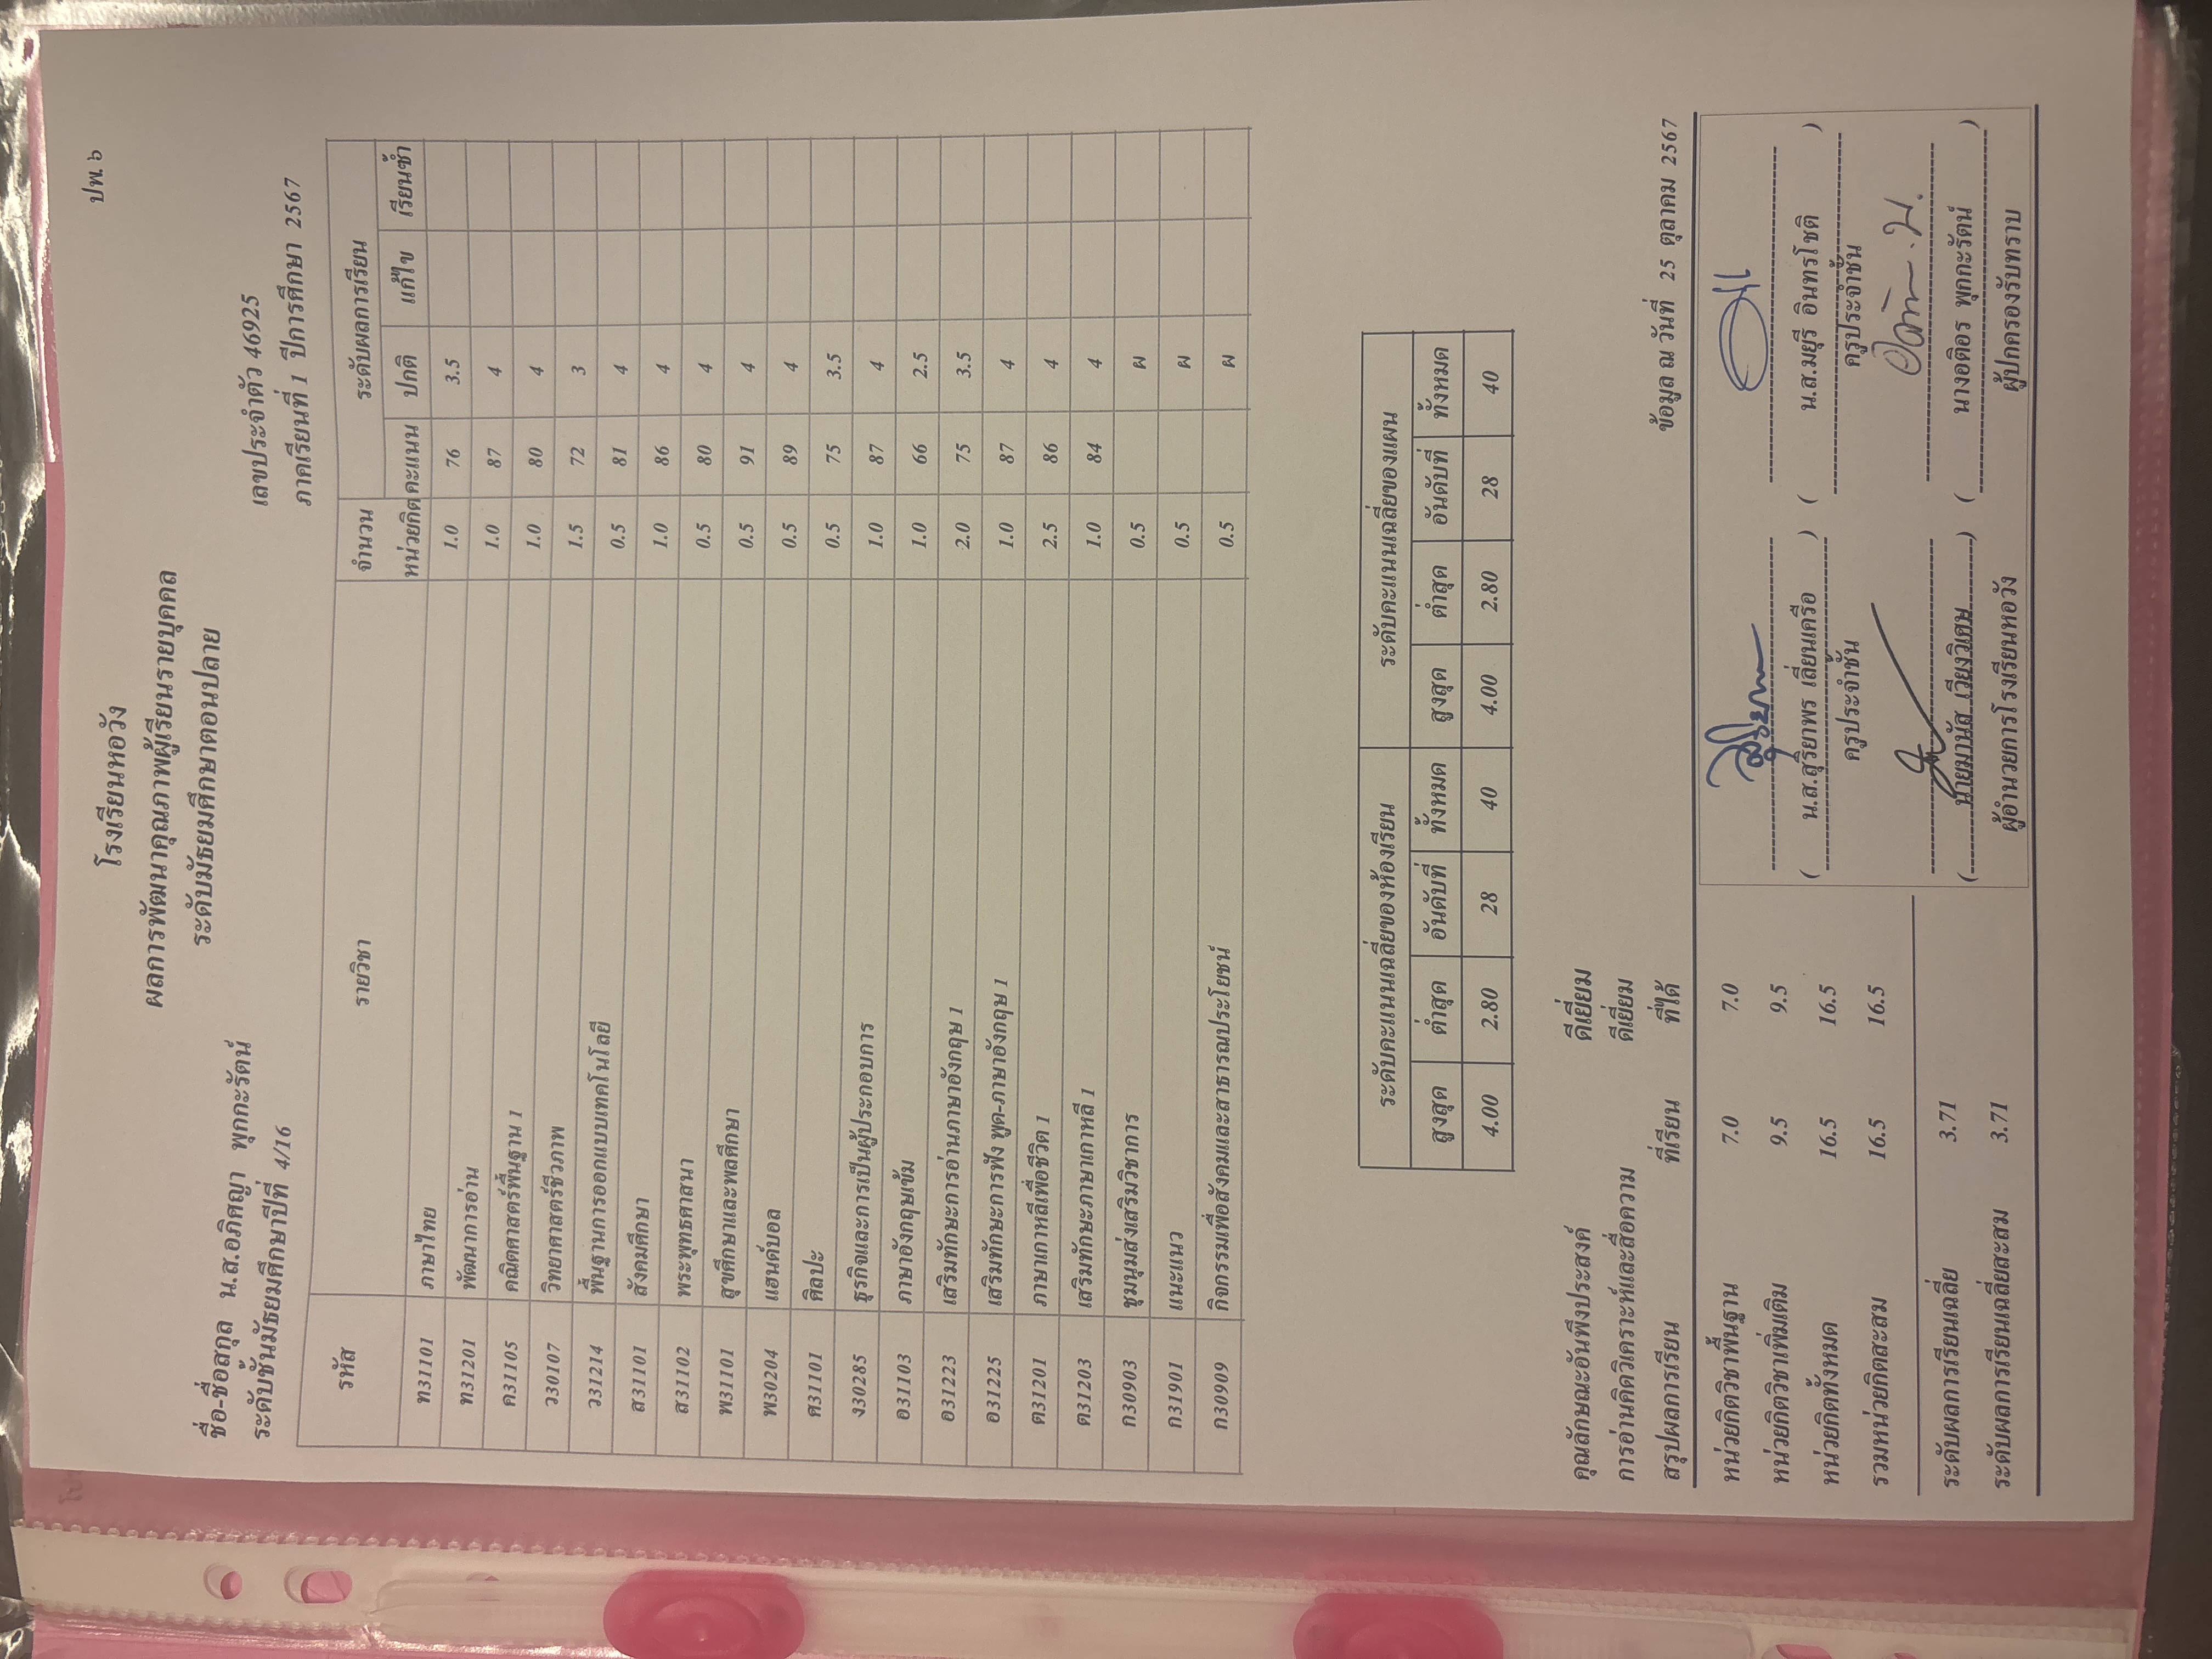 ปพ.๖
โรงเรียนหอวัง
ผลการพัฒนาคุณภาพผู้เรียนรายบุคคล
ระดับมัธยมศึกษาตอนปลาย
ชื่อ-ชื่อสกุล น.ส.อภิศญา พุกกะรัตน์ เลขประจำตัว 46925
ระดับชั้นมัธยมศึกษาปีที่ 4/16 ภาคเรียนที่ 1 ปีการศึกษา 2567
รหัส รายวิชา จำนวน ระดับผลการเรียน
หน่วยกิต คะแนน ปกติ แก้ไข เรียนซ้ำ
ท31101 ภาษาไทย 1.0 76 3.5
ท31201 พัฒนาการอ่าน 1.0 87 4
ค31105 คณิตศาสตร์พื้นฐาน 1 1.0 80 4
ว30107 วิทยาศาสตร์ชีวภาพ 1.5 72 3
ว31214 พื้นฐานการออกแบบเทคโนโลยี 0.5 81 4
ส31101 สังคมศึกษา 1.0 86 4
ส31102 พระพุทธศาสนา 0.5 80 4
พ31101 สุขศึกษาและพลศึกษา 0.5 91 4
พ30204 แฮนด์บอล 0.5 89 4
ศ31101 ศิลปะ 0.5 75 3.5
ง30285 ธุรกิจและการเป็นผู้ประกอบการ 1.0 87 4
อ31103 ภาษาอังกฤษเข้ม 1.0 66 2.5
อ31223 เสริมทักษะการอ่านภาษาอังกฤษ 1 2.0 75 3.5
อ31225 เสริมทักษะการฟัง พูด-ภาษาอังกฤษ 1 1.0 87 4
ต31201 ภาษาเกาหลีเพื่อชีวิต 1 2.5 86 4
ต31203 เสริมทักษะภาษาเกาหลี 1 1.0 84 4
ก30903 ชุมนุมส่งเสริมวิชาการ 0.5 ผ
ก31901 แนะแนว 0.5 ผ
ก30909 กิจกรรมเพื่อสังคมและสาธารณประโยชน์ 0.5 ผ
ระดับคะแนนเฉลี่ยของห้องเรียน ระดับคะแนนเฉลี่ยของแผน
สูงสุด ต่ำสุด อันดับที่ ทั้งหมด สูงสุด ต่ำสุด อันดับที่ ทั้งหมด
4.00 2.80 28 40 4.00 2.80 28 40
คุณลักษณะอันพึงประสงค์ ดีเยี่ยม
การอ่านคิดวิเคราะห์และสื่อความ ดีเยี่ยม
สรุปผลการเรียน ที่เรียน ที่ได้ ข้อมูล ณ วันที่ 25 ตุลาคม 2567
หน่วยกิตวิชาพื้นฐาน 7.0 7.0
หน่วยกิตวิชาเพิ่มเติม 9.5 9.5
หน่วยกิตทั้งหมด 16.5 16.5
รวมหน่วยกิตสะสม 16.5 16.5
ระดับผลการเรียนเฉลี่ย 3.71
ระดับผลการเรียนเฉลี่ยสะสม 3.71
( น.ส.สุริยาพร เลี่ยนเครือ ) ( น.ส.มยุรี อินทรโชติ )
ครูประจำชั้น ครูประจำชั้น
( นายมานัส เวียงวิเศษ ) ( นางอติอร พุกกะรัตน์ )
ผู้อำนวยการโรงเรียนหอวัง ผู้ปกครองรับทราบ